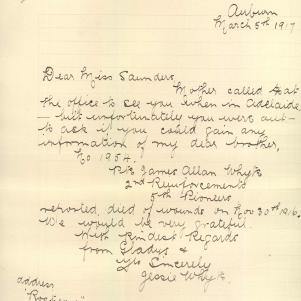 Auburn
March 5th 1917
Dear Miss Saunders,
Mother called at
the office to see you when in Adelaide
— but unfortunately you were out —
to ask if you could gain any
information of my dear brother,
No 1954.
Pte James Allan Whyte
2nd Reinforcements
5th Pioneers
reported died of wounds on Nov 30th 1916.
We would be very grateful.
With Kindest Regards
from Gladys &
Yrs Sincerely
Jessie Whyte.
address